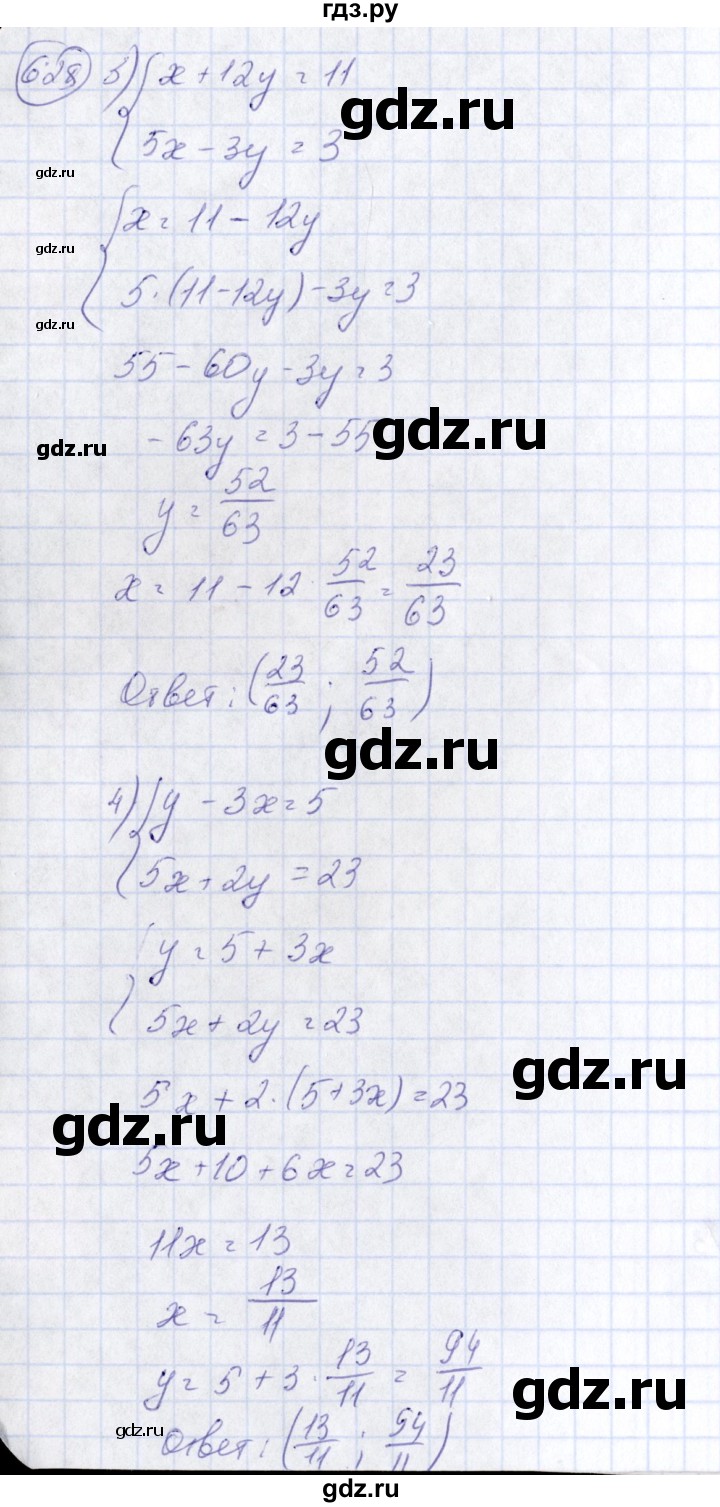 гдз.ру
628 3) { x + 12y = 11
gdz.ru
5x - 3y = 3
gdz.ru
{ x = 11 - 12y
gdz.ru
5·(11-12y) - 3y = 3
gdz.ru
55 - 60y - 3y = 3
- 63y = 3 - 55
gdz.ru
gdz.ru
y = 52/63
x = 11 - 12 · 52/63 = 23/63
Ответ: (23/63 ; 52/63)
gdz.ru
4) { y - 3x = 5
5x + 2y = 23
{ y = 5 + 3x
5x + 2y = 23
gdz.ru
5x + 2·(5+3x) = 23
gdz.ru
5x + 10 + 6x = 23
11x = 13
x = 13/11
y = 5 + 3 · 13/11 = 94/11
gdz.ru
gdz.ru
Ответ: (13/11 ; 94/11)
gdz.ru